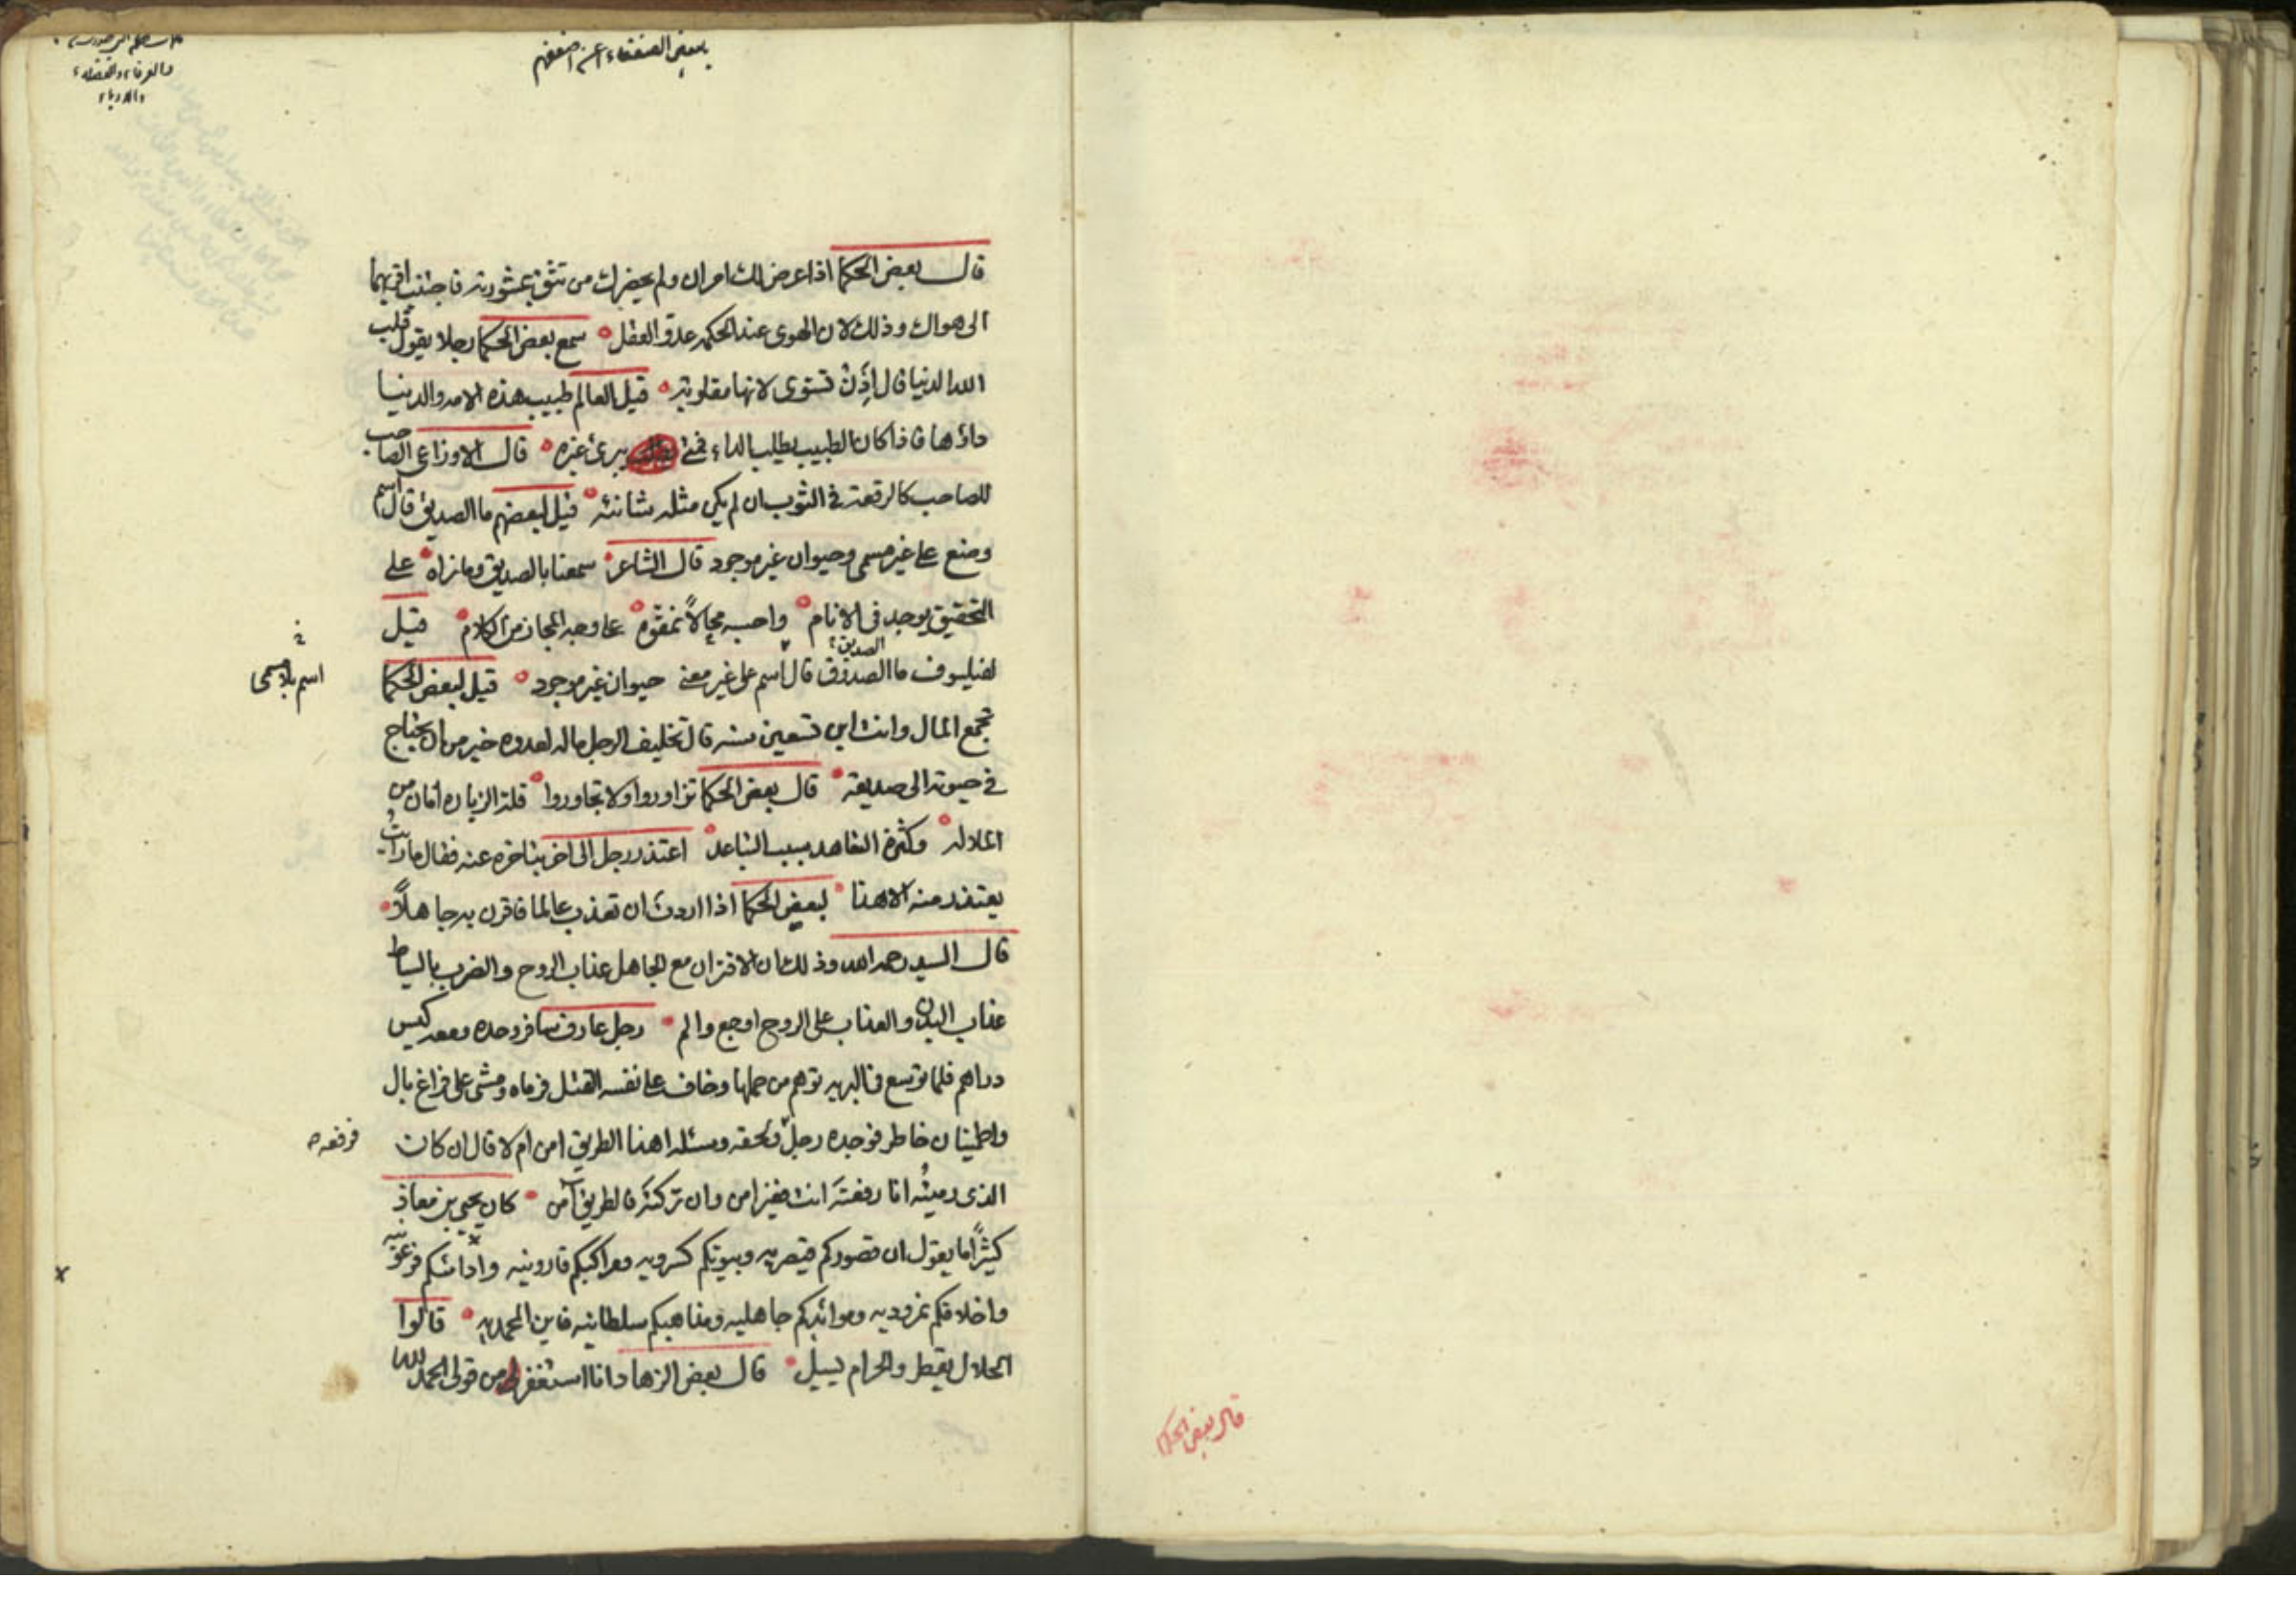 بعض الضعفاء عن اضعفهم
والعرفاء والفضلاء
والادباء
قال بعض الحكما اذا عرض لك امران ولم يحضرك من تثق بمشورته فاجتنب اقربهما
الى هواك وذلك لان الهوى عند الحكمه عدو العقل سمع بعض الحكما رجلا يقول قلب
الله الدنيا قال إذن تستوى لانها مقلوبة قيل العالم طبيب هذه الامه والدنيا
داؤها فاذا كان الطبيب يطلب الداء فمتى يبرئ غيره قال الاوزاعى الصاحب
للصاحب كالرقعة في الثوب ان لم يكن مثله شانته قيل لبعضهم ما الصديق قال اسم
وضع على غير مسمى وحيوان غير موجود قال الشاعر سمعنا بالصديق وما نراه على
التحقيق يوجد فى الانام واحسبه محالاً نمقوه على وجه المجاز من الكلام قيل
لفيلسوف ما الصدوق قال اسم على غير معنى حيوان غير موجود قيل لبعض الحكما
الصديق
اسم بلا مسمى
تجمع المال وانت ابن تسعين سنه قال تخليف الرجل ماله لعدوه خير من ان يحتاج
في حيوته الى صديقه قال بعض الحكما تزاوروا ولا تجاوروا قلة الزياره امان من
الملاله وكثرة التعاهد سبب التباعد اعتذر رجل الى اخر بتاخره عنه فقال ما رايت
يعتذر منه الا هذا لبعض الحكما اذا اردت ان تعذب عالما فاقرن به جاهلاً
قال السيد رحمه الله وذلك ان الاقتران مع الجاهل عذاب الروح والضرب بالسياط
عذاب البدن والعذاب على الروح اوجع والم رجل عارف سافر وحده ومعه كيس
دراهم فلما توسع فى البريه توهم من حملها وخاف على نفسه القتل فرماه ومشى على فراغ بال
واطمينان خاطر فوجده رجل ولحقه وسئله اهذا الطريق امن ام لا قال ان كان
فرفعه
الذى رميتُه انا رفعتَه انت فغير امن وان تركتَه فالطريق آمن كان يحيى بن معاذ
كثيراً ما يقول ان قصوركم قيصريه وبيوتكم كسرويه ومراكبكم قارونيه وأوانيكم فرعونيه
واخلاقكم نمروديه وموائدكم جاهليه ومذاهبكم سلطانيه فاين المحمديه قالوا
الحلال يقطر والحرام يسيل قال بعض الزهاد انا استغفر من قولى الحمد لله
قال بعض الحكما